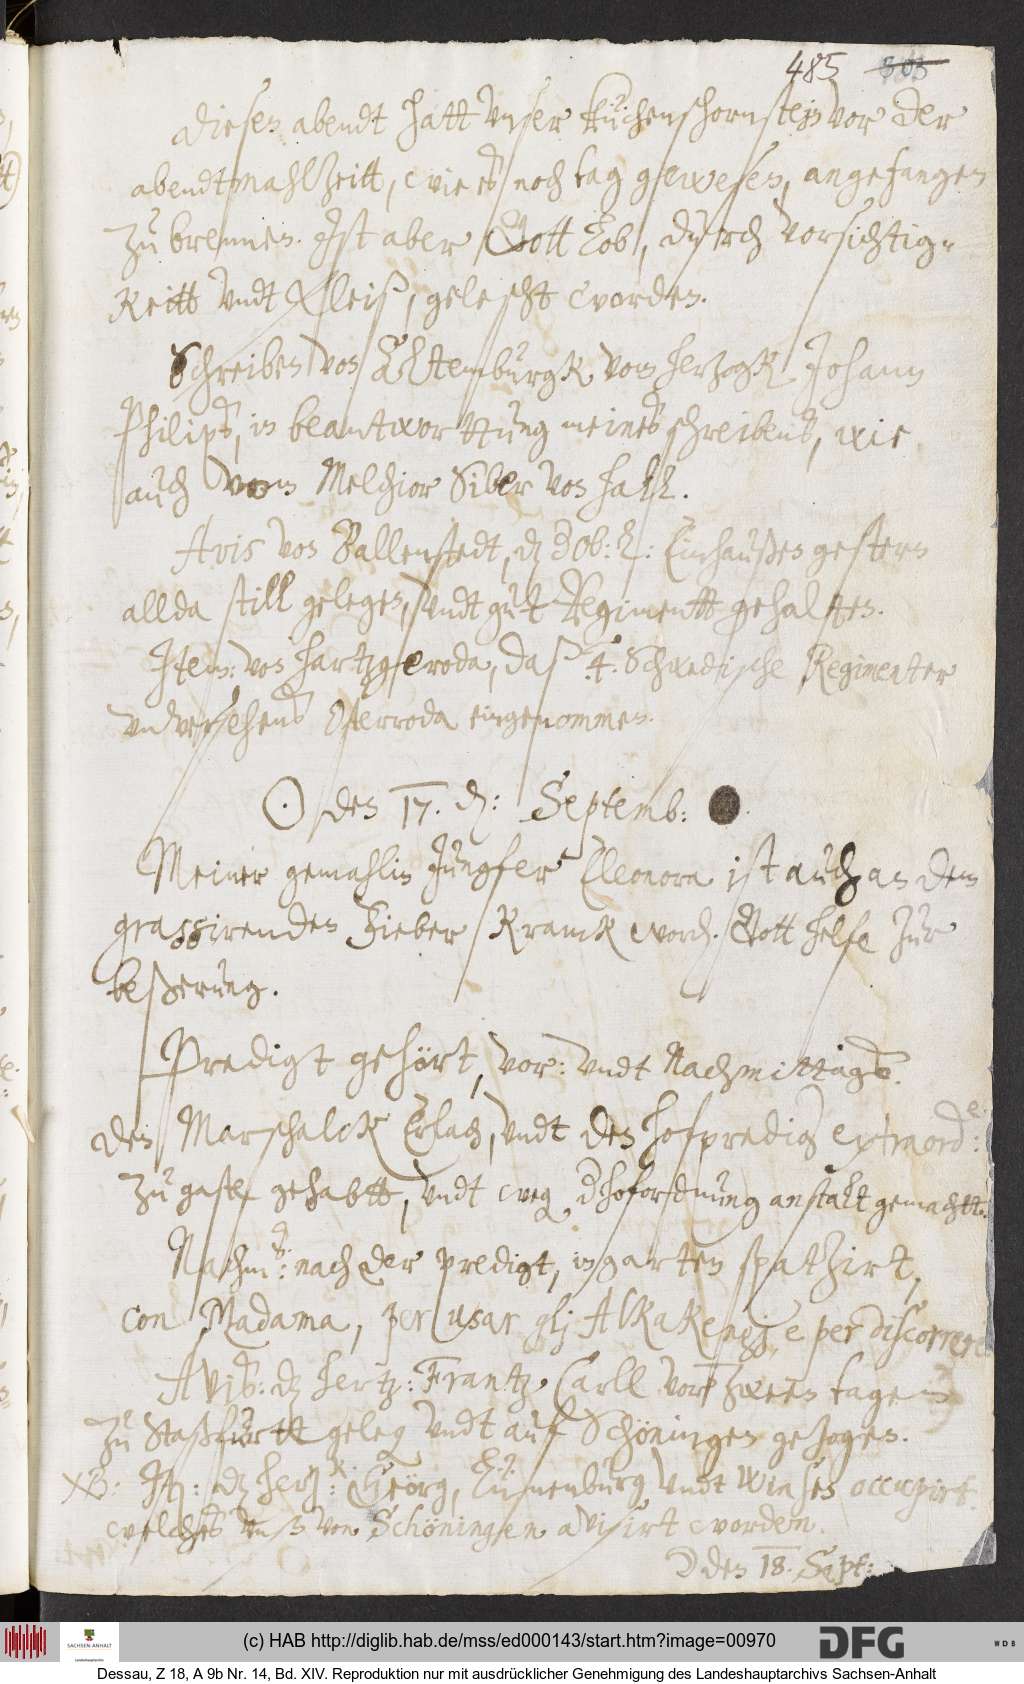 485 303
Diesen abendt hatt vnser küchenschornstein vor der
abendtmahlzeitt, wie es noch tag gewesen, angefangen
zu brennen. Jst aber Gott lob, durch vorsichtig-
keitt vndt fleiß, gelescht worden.
Schreiben von Altemburgk vom hertzogk Johann
Philips, in beantwortung meines schreibens, wie
auch vom Melchior Siber von hall.
Avis von Ballenstedt, dz Ob: L: Einhausen gestern
allda still gelegen, vndt gut Regimentt gehalten.
Jtem: von hartzgeroda, daß 4. Schwedische Regimenter
vnversehens Osterroda eingenommen.
⊙ den 17. d: Septemb:
Meiner gemahlin Jungfer Eleonora ist auch an dem
grassirenden Fieber kranck word. Gott helfe zur
beßerung.
Predigt gehört, vor: vndt Nachmittags.
den Marschalck Erlach, vndt den hofpredig extraord:e
zu gaste gehabtt, vndt weg d hofordnung anstalt gemachtt.
Nachm:s nach der predigt, in garten spatzirt,
con Madama, per usar glj Alkakengj, e per discorrere
Avis: dz hertz: Frantz Carll vor zween tagen
zu Staßfurtt geleg vndt auf Schöningen gezogen.
XB: Jt: dz hertz: Geörg, Lünenburg vndt Winsen occupirt
welches vnß von Schöningen avisirt worden.
☽ den 18. Sept:
(c) HAB http://diglib.hab.de/mss/ed000143/start.htm?image=00970
SACHSEN-ANHALT
Landeshauptarchiv
DFG
WDB
Dessau, Z 18, A 9b Nr. 14, Bd. XIV. Reproduktion nur mit ausdrücklicher Genehmigung des Landeshauptarchivs Sachsen-Anhalt